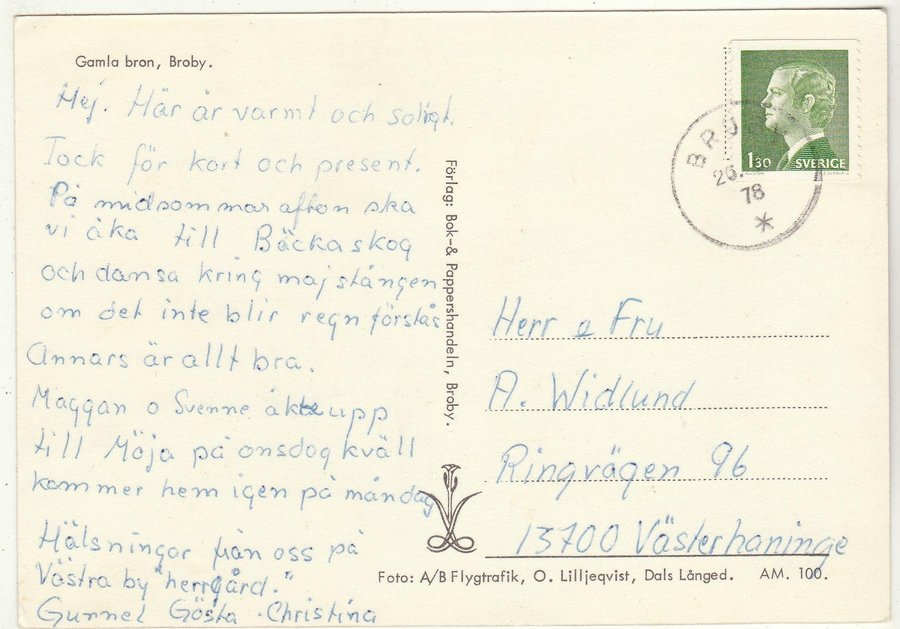 Gamla bron, Broby.
Hej. Här är varmt och soligt.
Tack för kort och present.
På midsommarafton ska
vi åka till Bäckaskog
och dansa kring majstången
om det inte blir regn förstås
Annars är allt bra.
Maggan o Svenne åkte upp
till Möja på onsdag kväll
kommer hem igen på måndag
Hälsningar från oss på
Västra by "herrgård."
Gunnel Gösta Christina
Förlag: Bok- & Pappershandeln, Broby.
1.30 SVERIGE
BR
26.
78
*
Herr o Fru
A. Widlund
Ringvägen 96
13700 Västerhaninge
Foto: A/B Flygtrafik, O. Lilljeqvist, Dals Långed. AM. 100.